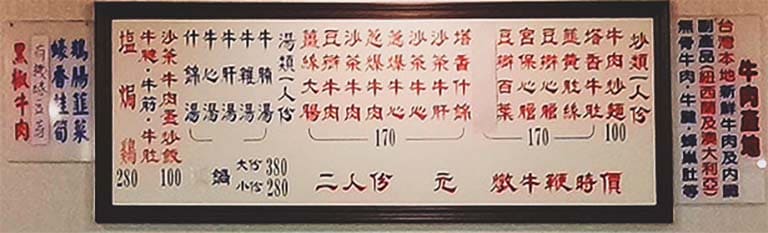 牛肉產地
台灣本地新鮮牛肉及內臟
副產品(紐西蘭及澳大利亞)
無骨牛肉·牛腱·蜂巢肚等
炒類一人份
牛肉炒麵 100
塔香牛肚
韮黃肚絲
豆瓣心腱
宮保心腱
豆瓣百葉
170
塔香什錦
沙茶牛肝
沙茶牛心
葱爆牛心
葱爆牛肉
沙茶牛肉
豆瓣牛肉
薑絲大腸
170
湯類一人份
牛腩湯
牛雜湯
牛肝湯
牛心湯
什錦湯
沙茶牛肉蛋炒飯 100
牛腱·牛筋·牛肚
塩焗鷄 280
鍋
大份380
小份280
二人份 元
燉牛鞭時價
鵝腸韮菜
蠔香生筍
黑椒牛肉